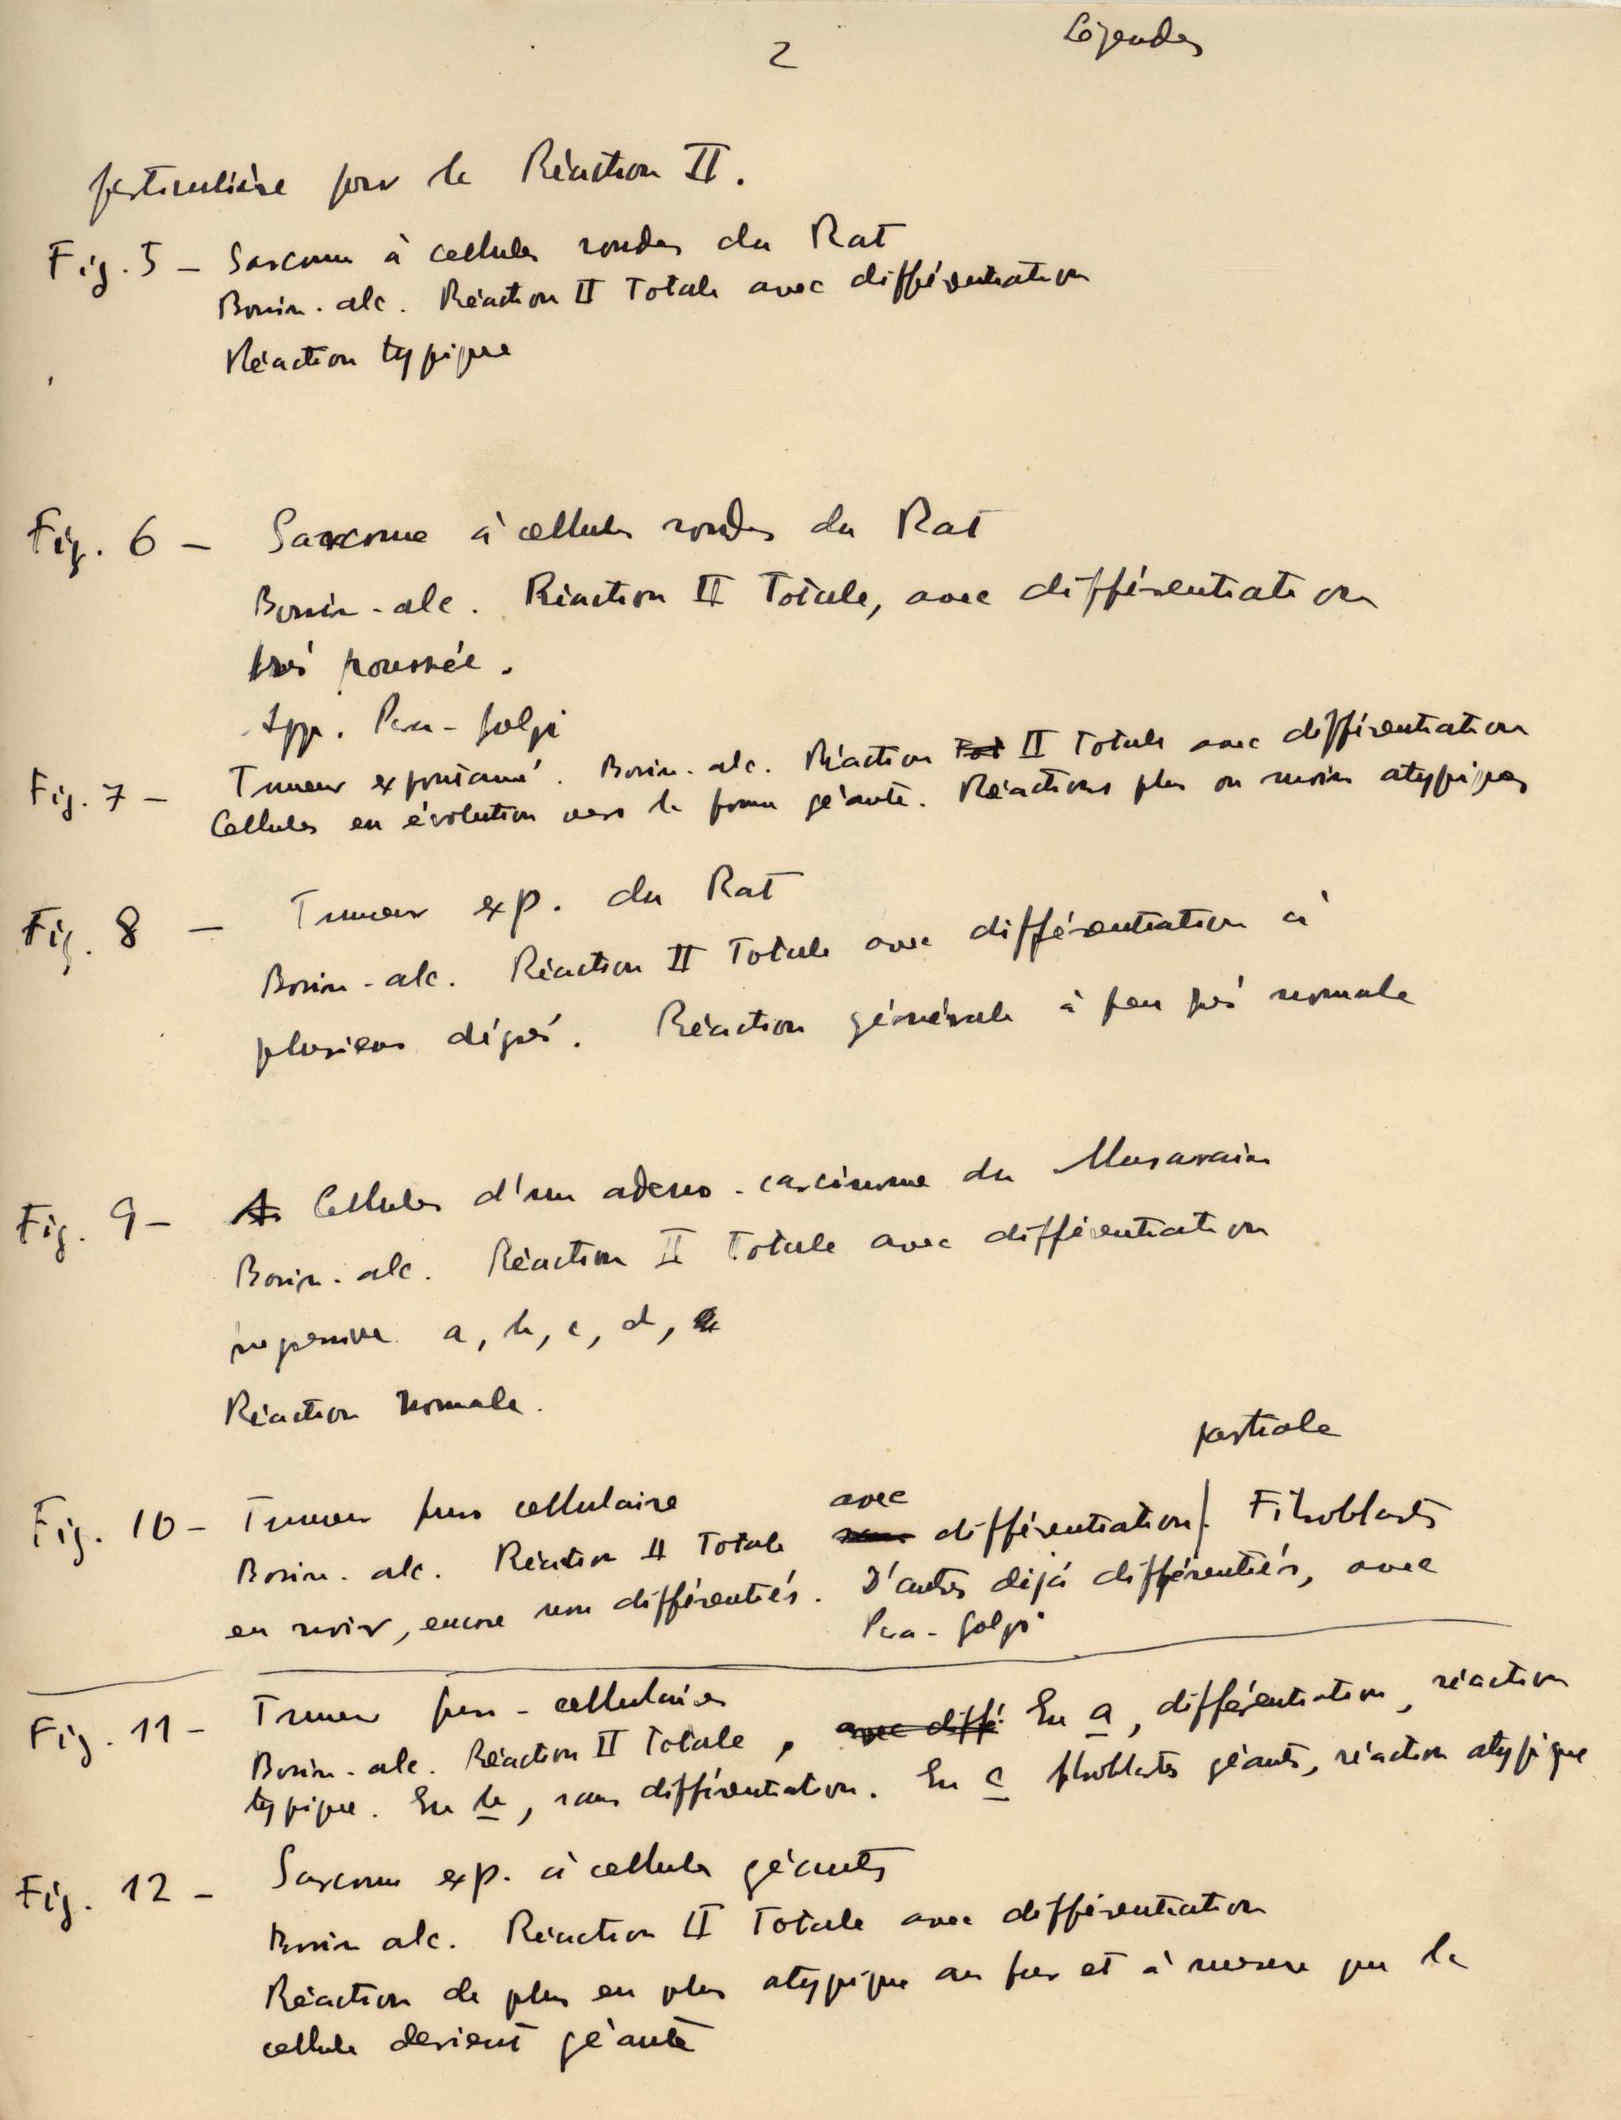 2
Légendes
particulière pour la Réaction II.
Fig. 5 – Sarcome à cellules rondes du Rat
Bouin-alc. Réaction II Totale avec différentiation
Réaction typique
Fig. 6 – Sarcome à cellules rondes du Rat
Bouin-alc. Réaction II Totale, avec différentiation
très poussée.
App. Para-Golgi
Fig. 7 – Tumeur exp. Bouin-alc. Réaction Tot II Totale avec différentiation
Cellules en évolution vers la forme géante. Réactions plus ou moins atypiques
Fig. 8 – Tumeur exp. du Rat
Bouin-alc. Réaction II Totale avec différentiation à
plusieurs degrés. Réaction générale à peu près normale
Fig. 9 – Cellules d'un adeno-carcinome du Musarain
Bouin-alc. Réaction II Totale avec différentiation
progressive a, b, c, d, e
Réaction normale.
partiale
Fig. 10 – Tumeur fuso cellulaire
avec
Bouin-alc. Réaction II Totale sans différentiation/. Fibroblasts
en noir, encore non différentiés. D'autres déjà différentiés, avec
Para-Golgi
Fig. 11 – Tumeur fuso-cellulaire
Bouin-alc. Réaction II Totale, avec diffé En a, différentiation, réaction
typique. En b, sans différentiation. En c fibroblastes géants, réaction atypique
Fig. 12 – Sarcome exp. à cellules géantes
Bouin alc. Réaction II Totale avec différentiation
Réaction de plus en plus atypique au fur et à mesure que la
cellule devient géante